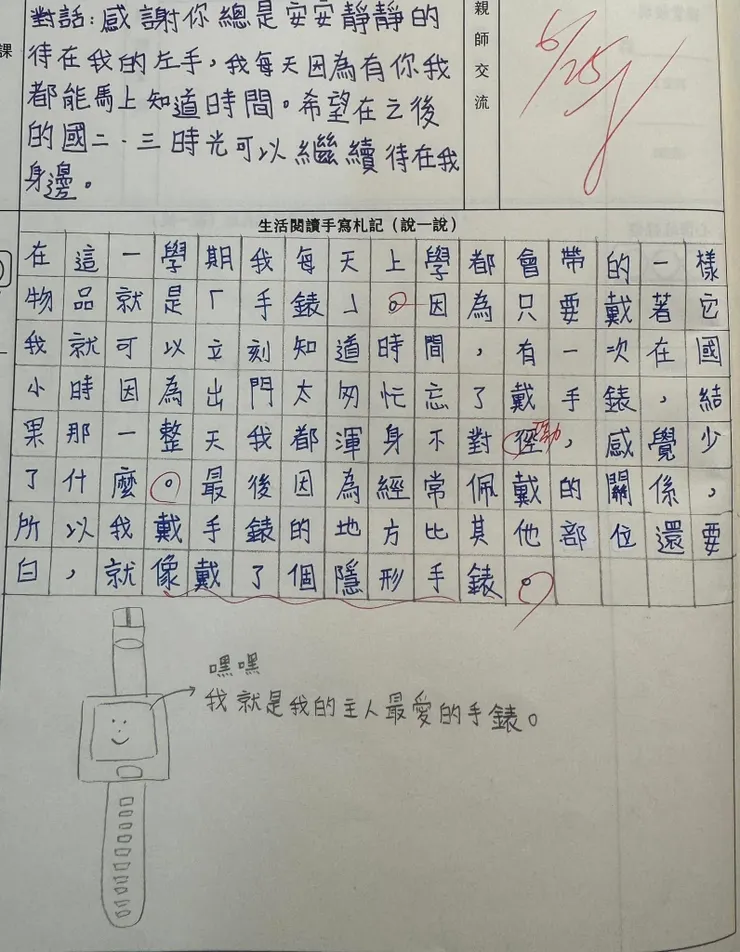 對話:感謝你總是安安靜靜的
待在我的左手,我每天因為有你我
都能馬上知道時間。希望在之後
的國二、三時光可以繼續待在我
身邊。
課
親師交流
6/25
生活閱讀手寫札記(說一說)
在這一學期我每天上學都會帶的一樣
物品就是「手錶」。因為只要戴著它
我就可以立刻知道時間,有一次在國
小時因為出門太匆忙忘了戴手錶,結
果那一整天我都渾身不對徑勁,感覺少
了什麼。最後因為經常佩戴的關係,
所以我戴手錶的地方比其他部位還要
白,就像戴了個隱形手錶。
嘿嘿
我就是我的主人最愛的手錶。